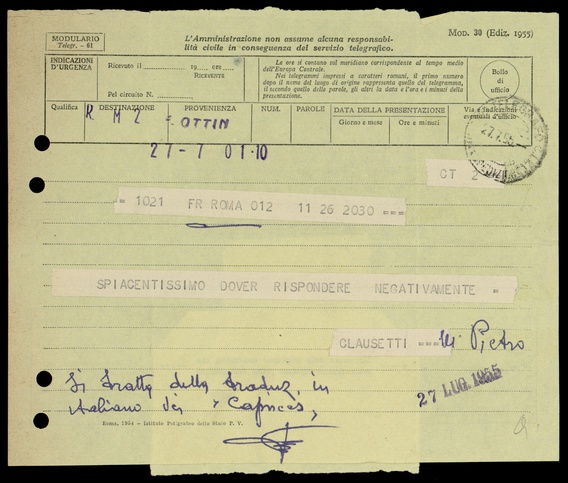 MODULARIO
Telegr. - 61
L'Amministrazione non assume alcuna responsabi-
lità civile in conseguenza del servizio telegrafico.
MOD. 30 (Ediz. 1955)
INDICAZIONI
D'URGENZA
Ricevuto il 19 ore
RICEVENTE
Pel circuito N.
Le ore si contano sul meridiano corrispondente al tempo medio
dell'Europa Centrale.
Nei telegrammi impressi a caratteri romani, il primo numero
dopo il nome del luogo di origine rappresenta quello del telegramma,
il secondo quello delle parole, gli altri la data e l'ora e i minuti della
presentazione.
Bollo
di
ufficio
Qualifica DESTINAZIONE PROVENIENZA NUM. PAROLE DATA DELLA PRESENTAZIONE Via e indicazioni
Giorno e mese Ore e minuti eventuali d'ufficio
R M Z OTTIN
27.7.55
27-7 01·10
CT 2
= 1021 FR ROMA 012 11 26 2030 ===
SPIACENTISSIMO DOVER RISPONDERE NEGATIVAMENTE =
CLAUSETTI === M° Pietro
27 LUG. 1955
Si tratta della traduz. in
italiano dei "Caprices"
Roma, 1954 - Istituto Poligrafico dello Stato P. V.